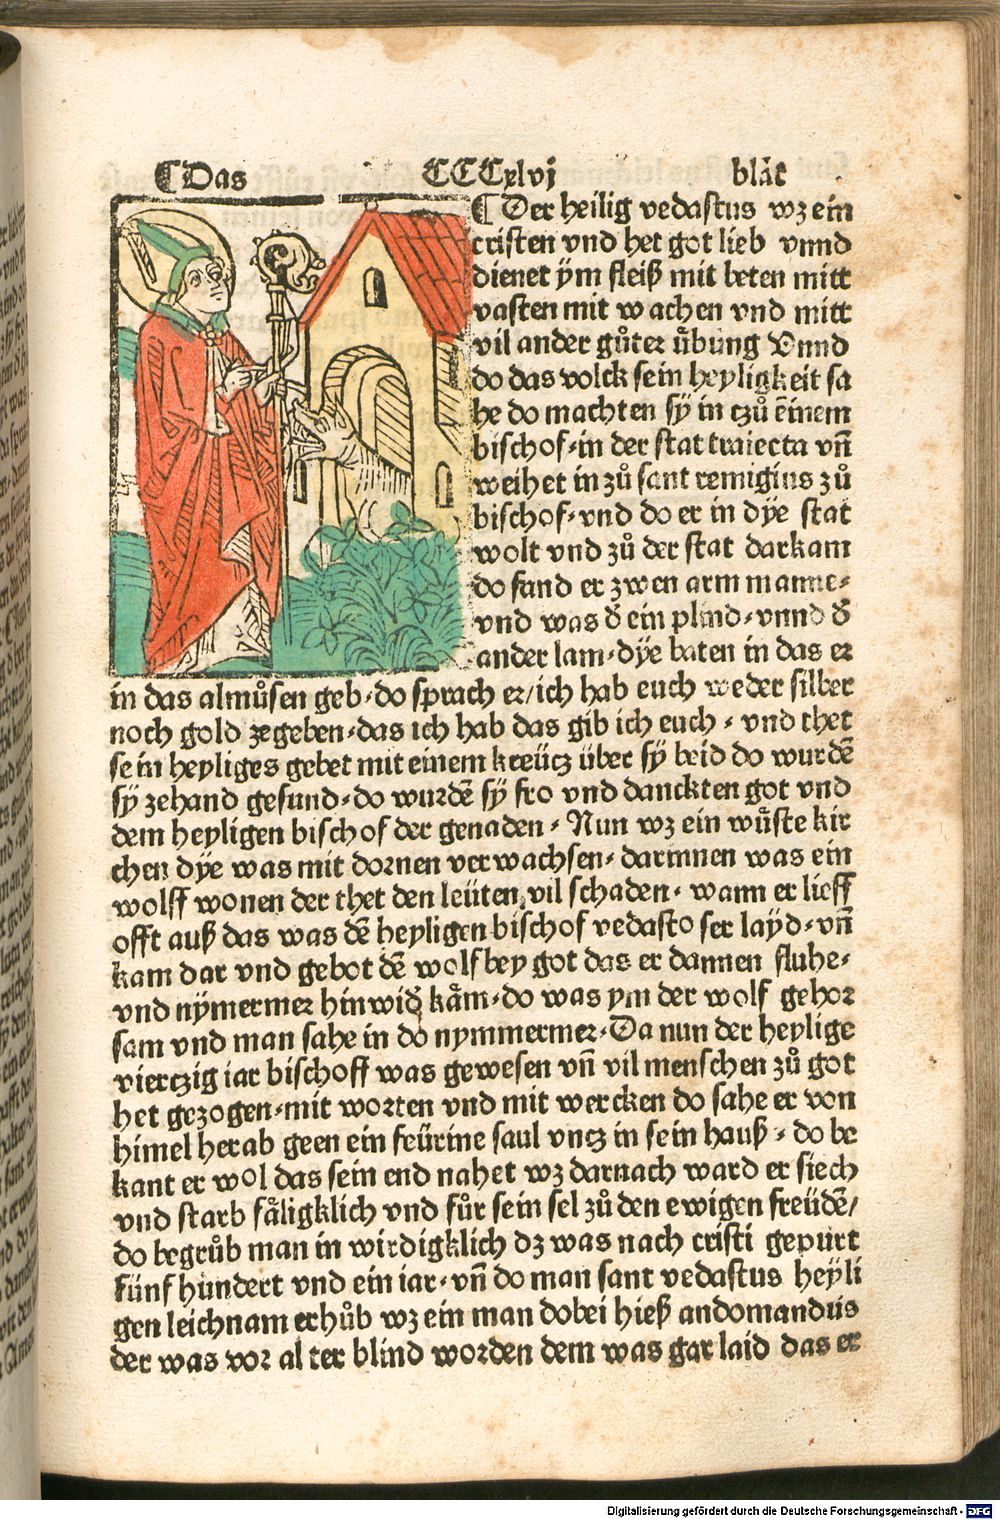 ¶Das CCCxlvj blāt
¶Der heilig vedastus wz ein
cristen vnd het got lieb vnnd
dienet ÿm fleiß mit beten mitt
vasten mit wachen vnd mitt
vil ander gůter ůbung Vnnd
do das volck sein heyligkeit sa
he do machten sÿ in czů einem
bischof·in der stat traiecta vñ
weihet in zů sant remigius zů
bischof·vnd do er in dÿe stat
wolt vnd zů der stat darkam
do fand er zwen arm manne·
vnd was đ ein plind·vnnd đ
ander lam·dÿe baten in das er
in das almůsen geb·do sprach er/ich hab euch weder silber
noch gold zegeben·das ich hab das gib ich euch·vnd thet
sein heyliges gebet mit einem kreücz über sÿ beid do wurdē
sÿ zehand gesund·do wurdē sÿ fro vnd danckten got vnd
dem heyligen bischof der genaden·Nun wz ein wůste kir
chen dÿe was mit dornen verwachsen·darinnen was ein
wolff wonen der thet den leüten vil schaden·wann er lieff
offt auß das was dē heyligen bischof vedasto ser layd·vñ
kam dar vnd gebot dē wolf bey got das er dannen fluhe·
vnd nÿmermer hinwiđ kåm·do was ym der wolf gehor
sam vnd man sahe in do nymmermer·Da nun der heylige
vierczig iar bischoff was gewesen vñ vil menschen zů got
het gezogen·mit worten vnd mit wercken do sahe er von
himel herab geen ein feürine saul vncz in sein hauß·do be
kant er wol das sein end nahet wz darnach ward er siech
vnd starb såligklich vnd fůr sein sel zů den ewigen freüdē/
do begrůb man in wirdigklich dz was nach cristi gepurt
fünf hundert vnd ein iar·vñ do man sant vedastus heyli
gen leichnam erhůb wz ein man dobei hieß andomandus
der was vor alter blind worden dem was gar laid das er
Digitalisierung gefördert durch die Deutsche Forschungsgemeinschaft - DFG